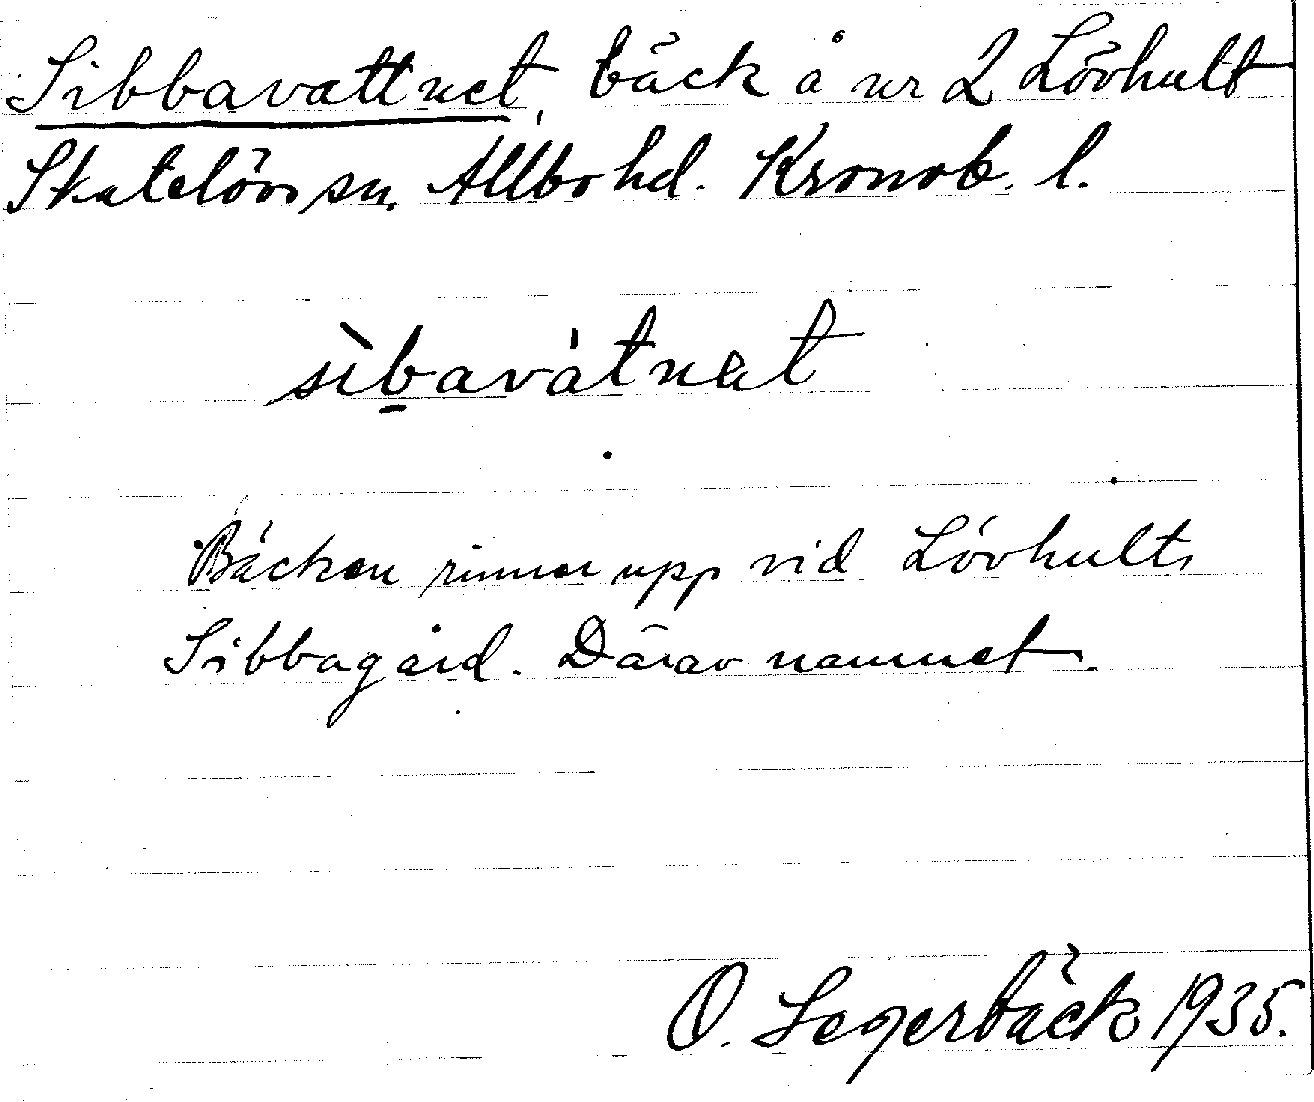 Sibbavattnet, bäck å nr 2 Lövhult
Skatelövs sn. Allbo hd. Kronob. l.
sìbavàtnət
Bäcken rinner upp vid Lövhults
Sibbagård. Därav namnet.
O. Segerbäck 1935.